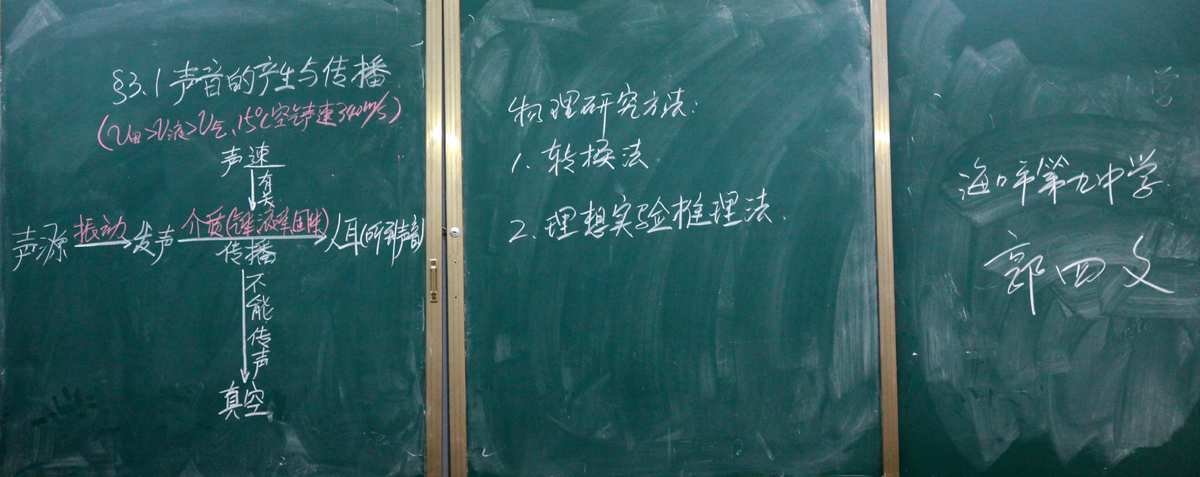 §3.1 声音的产生与传播
(V固>V液>V气,15℃空气声速340m/s)
声速
有关
声源 振动 发声 介质(气体液体固体) 人耳(听到声音)
传播
不能传声
真空
物理研究方法:
1. 转换法
2. 理想实验推理法.
学
海口市第九中学
郭四文